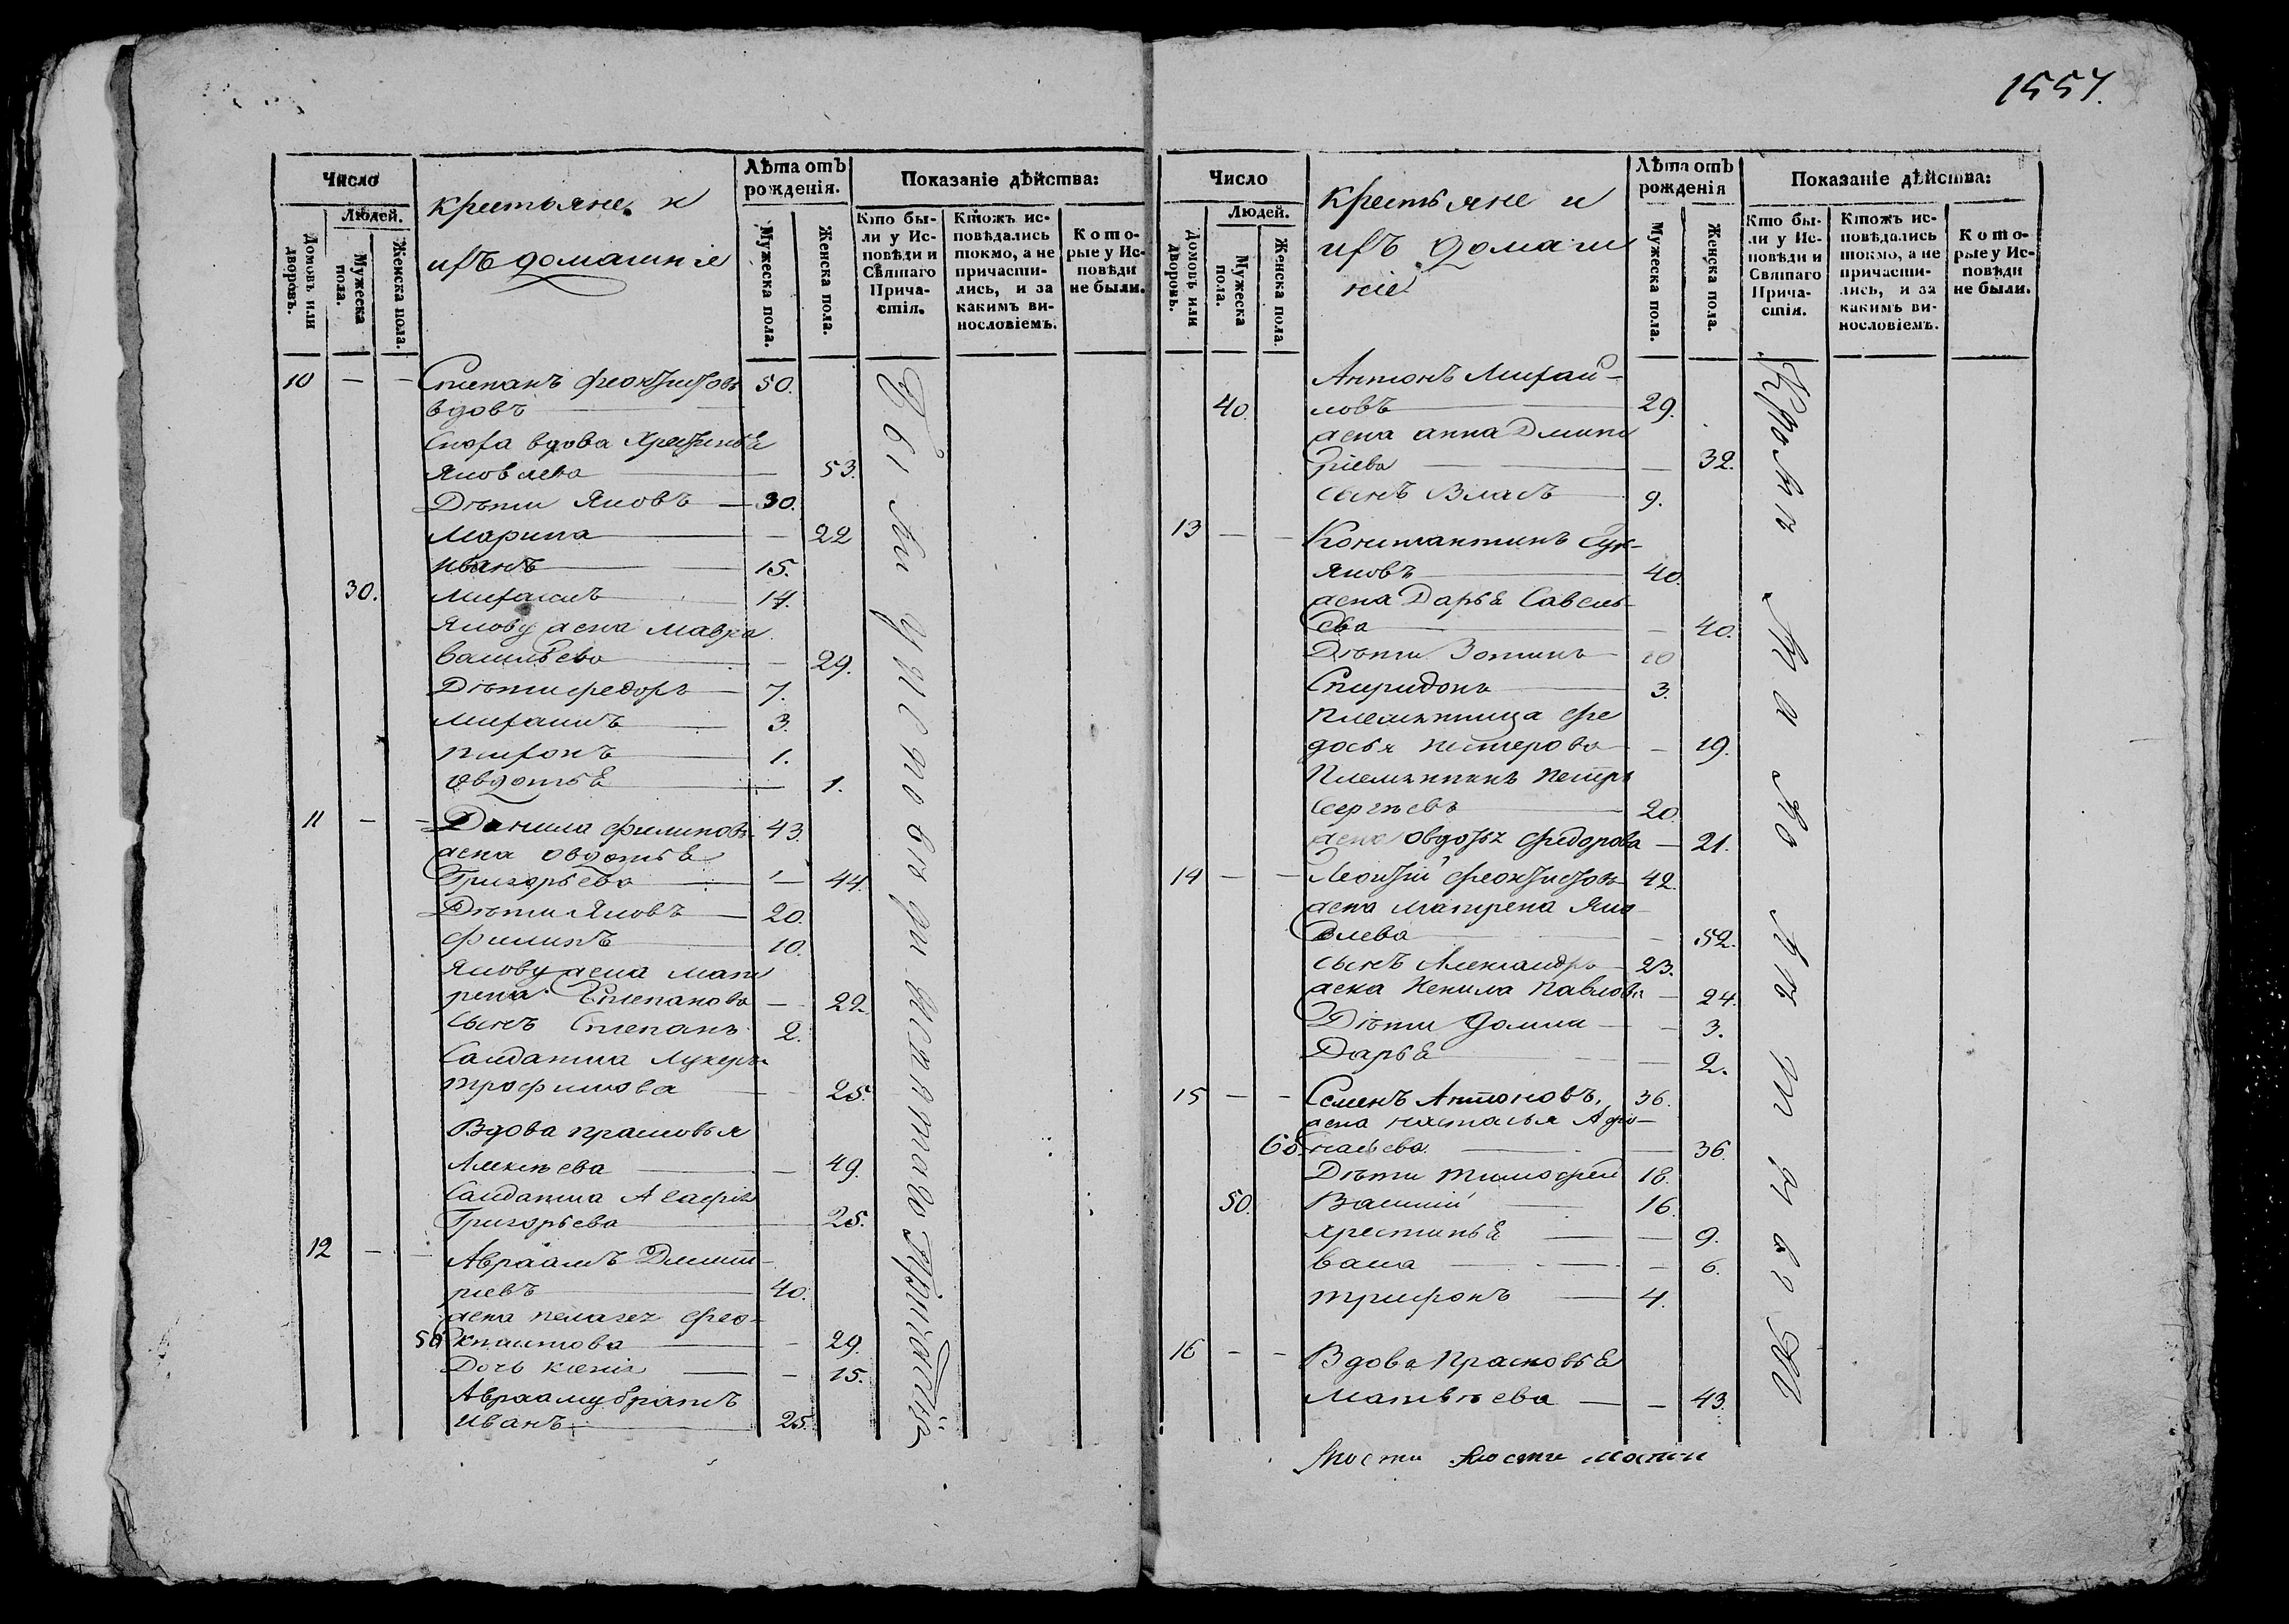 1557.
Число
Людей.
Домовъ или дворовъ.
Мужеска пола.
Женска пола.
крестьяне и
ихъ домашніе
Лѣта отъ рожденія.
Мужеска пола.
Женска пола.
Показаніе дѣйства:
Кто бы-
ли у Ис-
повѣди и
Святаго
Прича-
стія.
Ктожъ ис-
повѣдались
токмо, а не
причасти-
лись, и за
какимъ ви-
нословіемъ.
Кото-
рые у Ис-
повѣди
не были.
10 — — Степанъ Феоктистовъ 50.
вдовъ
Сноха вдова Хрестинья
Яковлева — 53.
Дѣти Яковъ — 30.
Марина — 22
Иванъ — 15.
30. Михаилъ — 14.
Якову жена Мавра
Васильева — 29.
Дѣти Федоръ — 7.
Михаилъ — 3.
Тифонъ — 1.
Овдотья — 1.
11 — — Данила Филиповъ 43.
жена Овдотья
Григорьева — 44.
Дѣти Яковъ — 20.
Филипъ — 10.
Якову жена Мат
рена Степанова — 22.
Сынъ Степанъ 2.
Салдатка Лукерья
Трофимова — 25.
Вдова Прасковья
Алексѣева — 49.
Салдатка Агафія
Григорьева — 25.
12 — — Авраамъ Дмит-
ріевъ — 40.
жена Пелагея Фео-
50 ктистова — 29.
Дочь Ксенія — 15.
Аврааму братъ
Иванъ — 25.
Были у Исповѣди и Святаго Причастія
Число
Людей.
Домовъ или дворовъ.
Мужеска пола.
Женска пола.
крестьяне и
ихъ домаш
ніе
Лѣта отъ рожденія
Мужеска пола.
Женска пола.
Показаніе дѣйства:
Кто бы-
ли у Ис-
повѣди и
Святаго
Прича-
стія.
Ктожъ ис-
повѣдались
токмо, а не
причасти-
лись, и за
какимъ ви-
нословіемъ.
Кото-
рые у Ис-
повѣди
не были.
Антонъ Михай-
40. ловъ — 29.
жена Анна Дмит
ріева — 32.
сынъ Власъ — 9.
13 — — Константинъ Лук-
яновъ — 40.
жена Дарья Савель-
ева — 40.
Дѣти Зотикъ — 10
Спиридонъ — 3.
Племянница Фе
досья Нестерова — 19.
Племянникъ Петръ
Сергѣевъ — 20.
жена Овдотья Федорова — 21.
14 — — Леонтій Феоктистовъ 42.
жена Матрена Яко
влева — 52.
сынъ Александръ — 23.
жена Некила Павлова — 24.
Дѣти Домна — 3.
Дарья — 2.
15 — — Семенъ Антоновъ, 36.
жена Настасья Афо-
60 насьева. — 36.
Дѣти Тимофей 18.
50. Василій — 16.
Хрестинья — 9.
Васа — 6.
Трифонъ — 4.
16 — — Вдова Прасковья
Матвѣева — 43.
Кромѣ